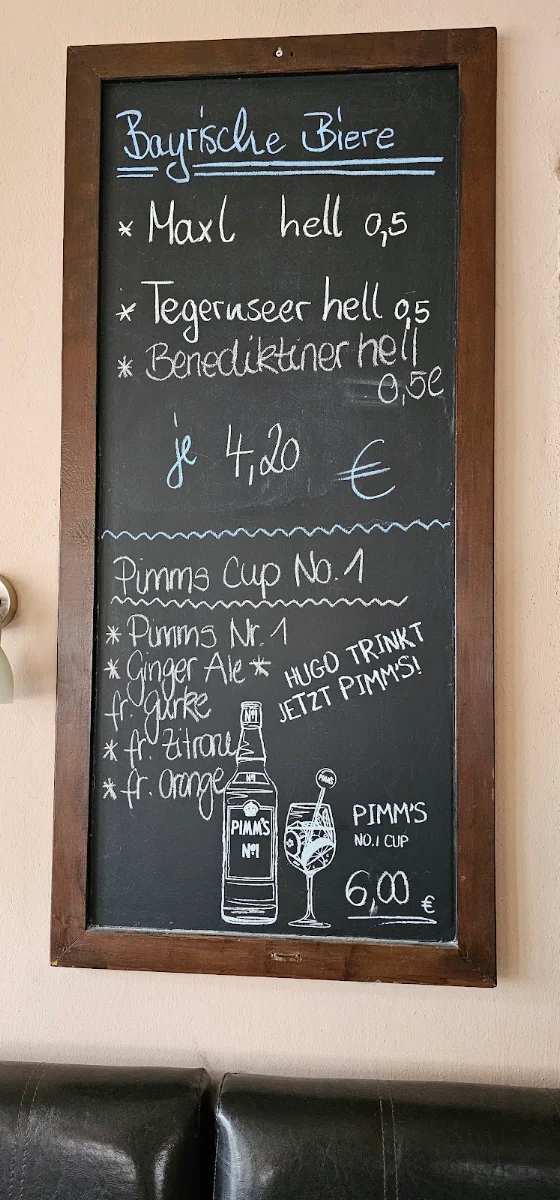 Bayrische Biere
* Maxl hell 0,5
* Tegernseer hell 0,5
* Benediktiner hell
0,5l
je 4,20 €
Pimms Cup No. 1
* Pimms Nr. 1
* Ginger Ale *
fr. gurke
* fr. Zitrone
* fr. Orange
HUGO TRINKT
JETZT PIMM'S!
No1
No1
PIMM'S
No1
PIMMS
PIMM'S
NO.1 CUP
6,00 €